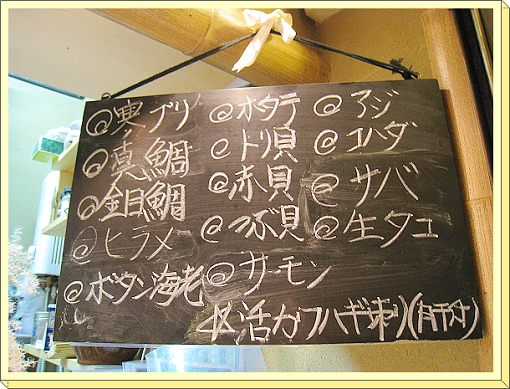 @寒ブリ @ホタテ @アジ
@真鯛 @トリ貝 @コハダ
@金目鯛 @赤貝 @サバ
@ヒラメ @つぶ貝 @生タコ
@ボタン海老 @サーモン
☆活カワハギ刺(肝付)